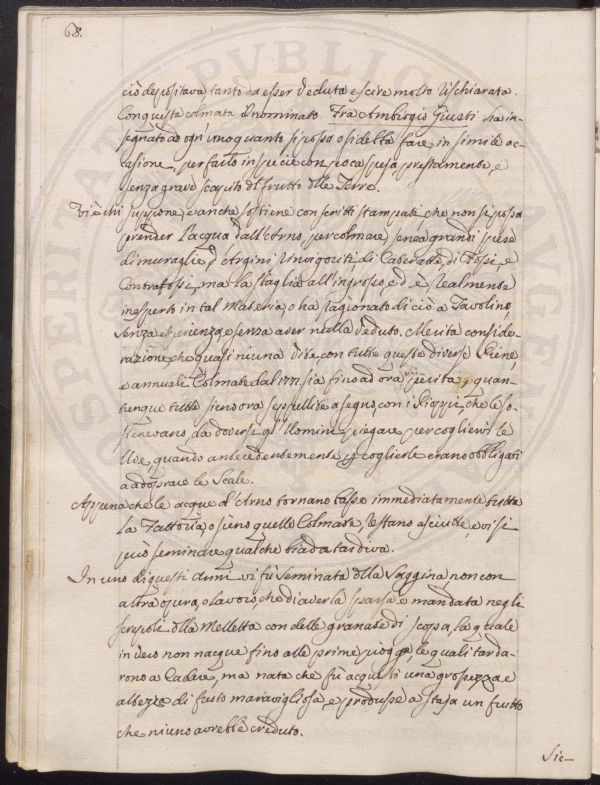 68.
ciò depositava, tanto da esser veduta escire molto rischiarata.
Con questa colmata il nominato Fra Ambrogio Giusti ha in-
segnato ad ogn'uno quanto si possa o si debba fare in simile oc-
casione, per farlo in specie con poca spesa prestamente, e
senza grave scapito del frutto delle Terre.
Vi è chi suppone, e anche sostiene con scritti stampati, che non si possa
prender l'acqua dall'Arno, per colmare senza grandi spese
di muraglie, d'Argini rinvigoriti, di Cateratte, di Fossi, e
Contrafossi, ma la sbaglia all'ingrosso, ed è realmente
inesperto in tal materia, o ha ragionato di ciò a Tavolino,
senza esperienza, e senza aver nulla veduto. Merita conside-
razione, che quasi niuna Vite con tutte queste diverse Piene,
e annuali Colmate dal 1771 sia fino ad ora perita, quan-
tunque tutte sieno ora seppellite a segno, con i Pioppi, che le so-
stenevano, da doversi gl'Uomini piegare per cogliervi le
Uve, quando antecedentemente p coglierle erano obbligati
a adoprare le Scale.
Appena che le acque d'Arno tornano basse immediatamente tutta
la Fattoria, o sieno quelle Colmate, restano asciutte, e vi si
può seminare qualche biada tardiva.
In uno di questi Anni vi fù seminata della Saggina non con
altra opura, o lavoro, che di averla sparsa e mandata negli
screpoli della Melletta con delle granate di scopa, la quale
in vero non nacque fino alle prime piogge, le quali tarda-
rono a cadere, ma nata che fù acquistò una grossezza e
altezza di fusto maravigliosa, e produsse a Stasa un frutto
che niuno avrebbe creduto.
Sic-